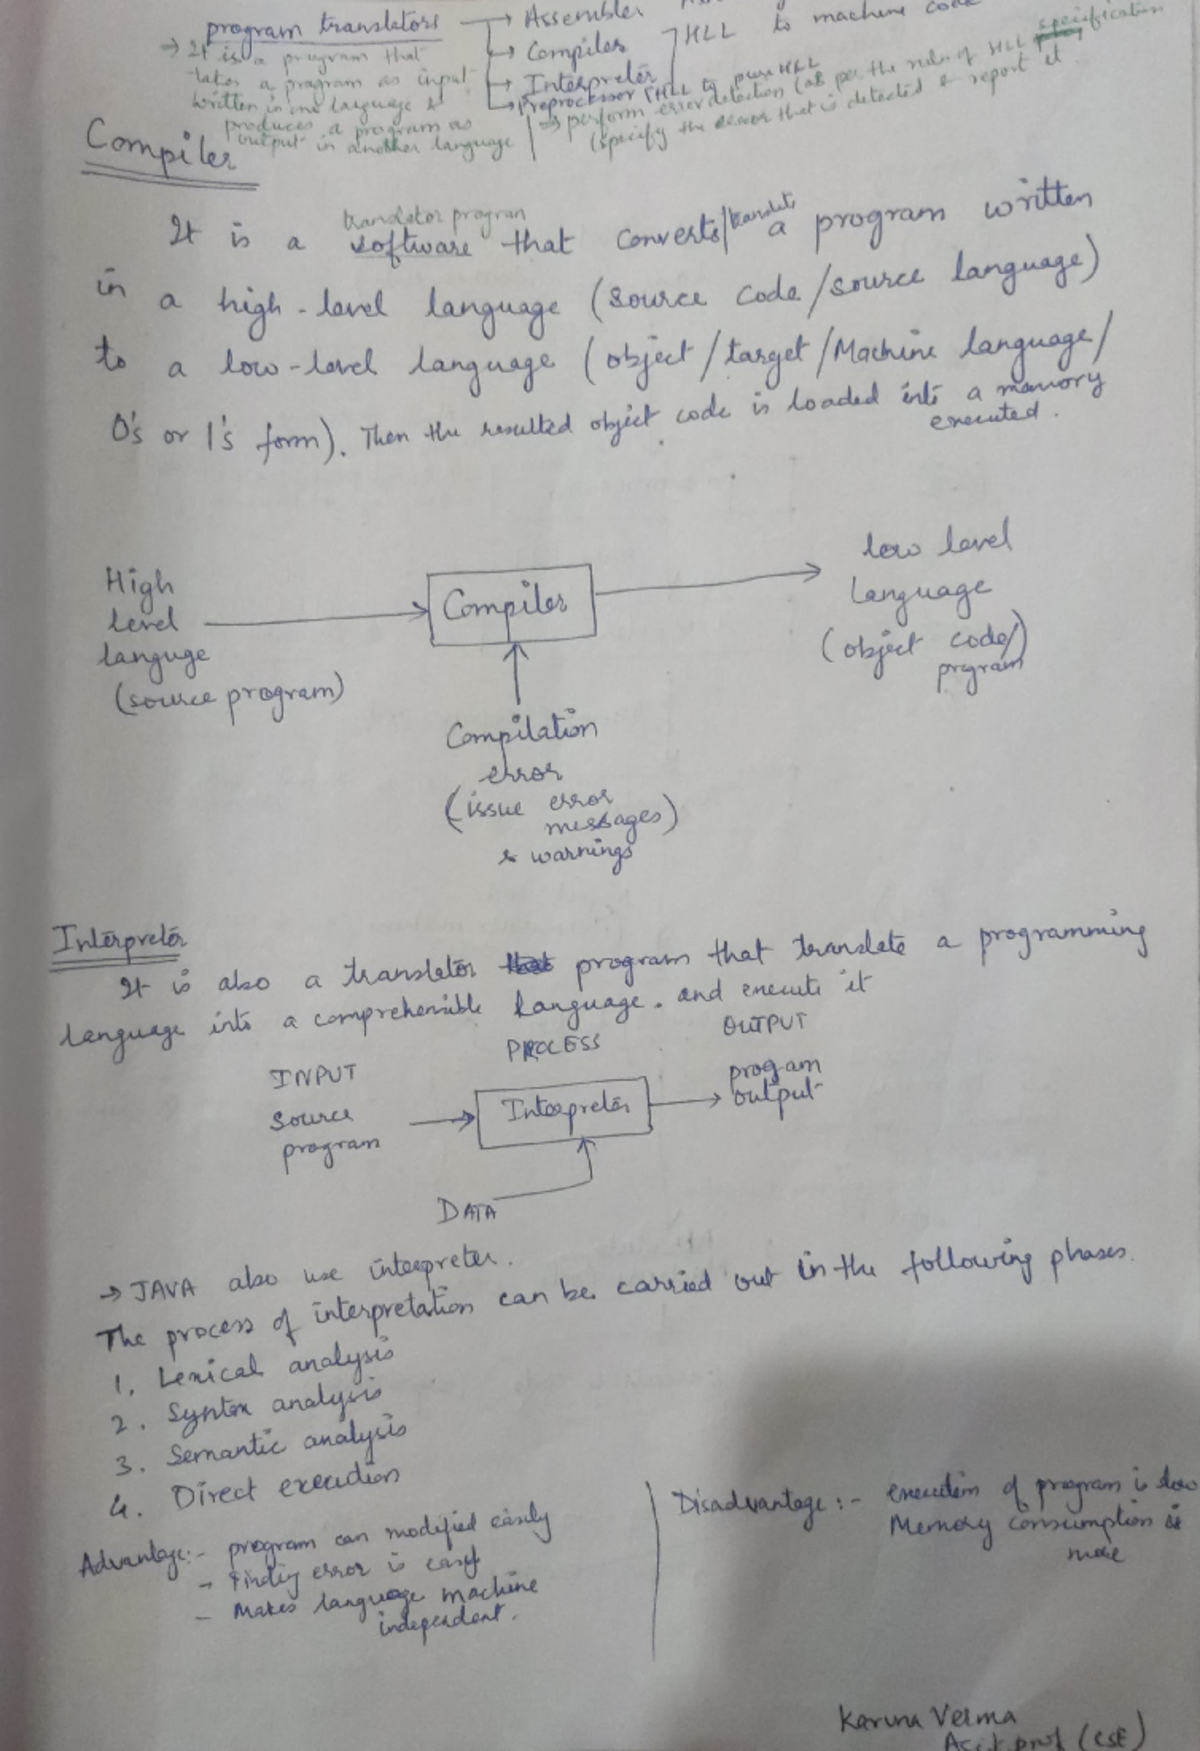 program translators → Assembler
→ Compiler HLL to machine code
→ It is a program that → Interpreter
takes a program as input → Preprocessor (HLL to pure HLL
written in one language & → perform error detection (as per the rules of HLL specification
produces a program as (specify the error that is detected & report it
output in another language
Compiler
translator program
It is a software that converts/translate a program written
in a high-level language (source code/source language)
to a low-level language (object/target/Machine language/
0's or 1's form). Then the resulted object code is loaded into a memory
executed.
High
level
languge
(source program)
Compiler
low level
language
(object code/
program)
Compilation
error
(issue error
messages)
& warnings
Interpreter
It is also a translator that program that translate a programming
language into a comprehensible language. and execute it
INPUT PROCESS OUTPUT
source
program
Interpreter
program
output
DATA
→ JAVA also use interpreter.
The process of interpretation can be carried out in the following phases.
1. Lexical analysis
2. Syntax analysis
3. Semantic analysis
4. Direct execution
Advantage:- program can modified easily
- Finding error is easy
- Makes language machine
independent.
Disadvantage:- execution of program is slow
Memory consumption is
more
Karuna Verma
Asst prof (CSE)